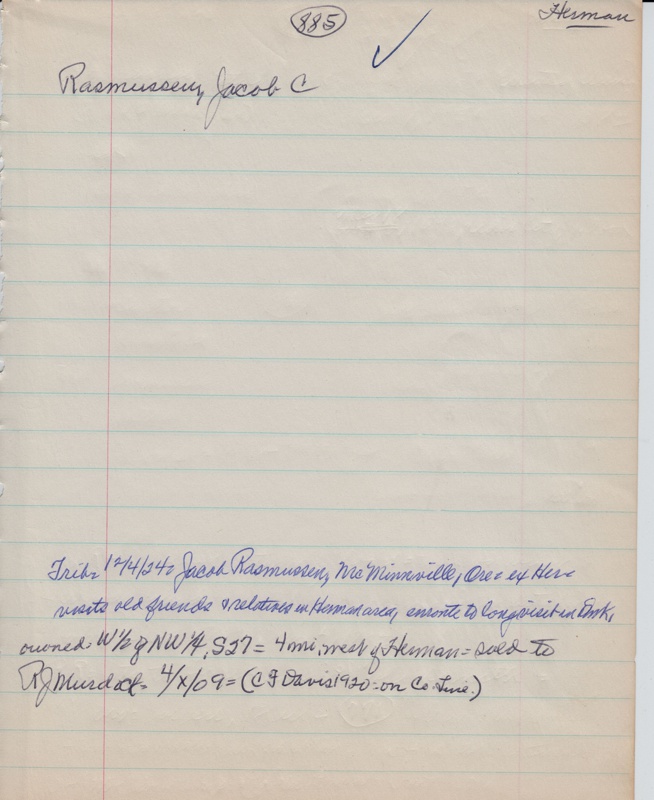 885
Herman
Rasmussen, Jacob C
Trib= 12/4/24= Jacob Rasmussen, McMinnville, Ore= ex Her=
visits old friends & relatives in Herman area, enroute to long visit in Dmk,
owned= W½ of NW¼, S27= 4 mi, west of Herman= sold to
RJ Murdock= 4/x/09= (C F Davis 1920= on Co Line.)